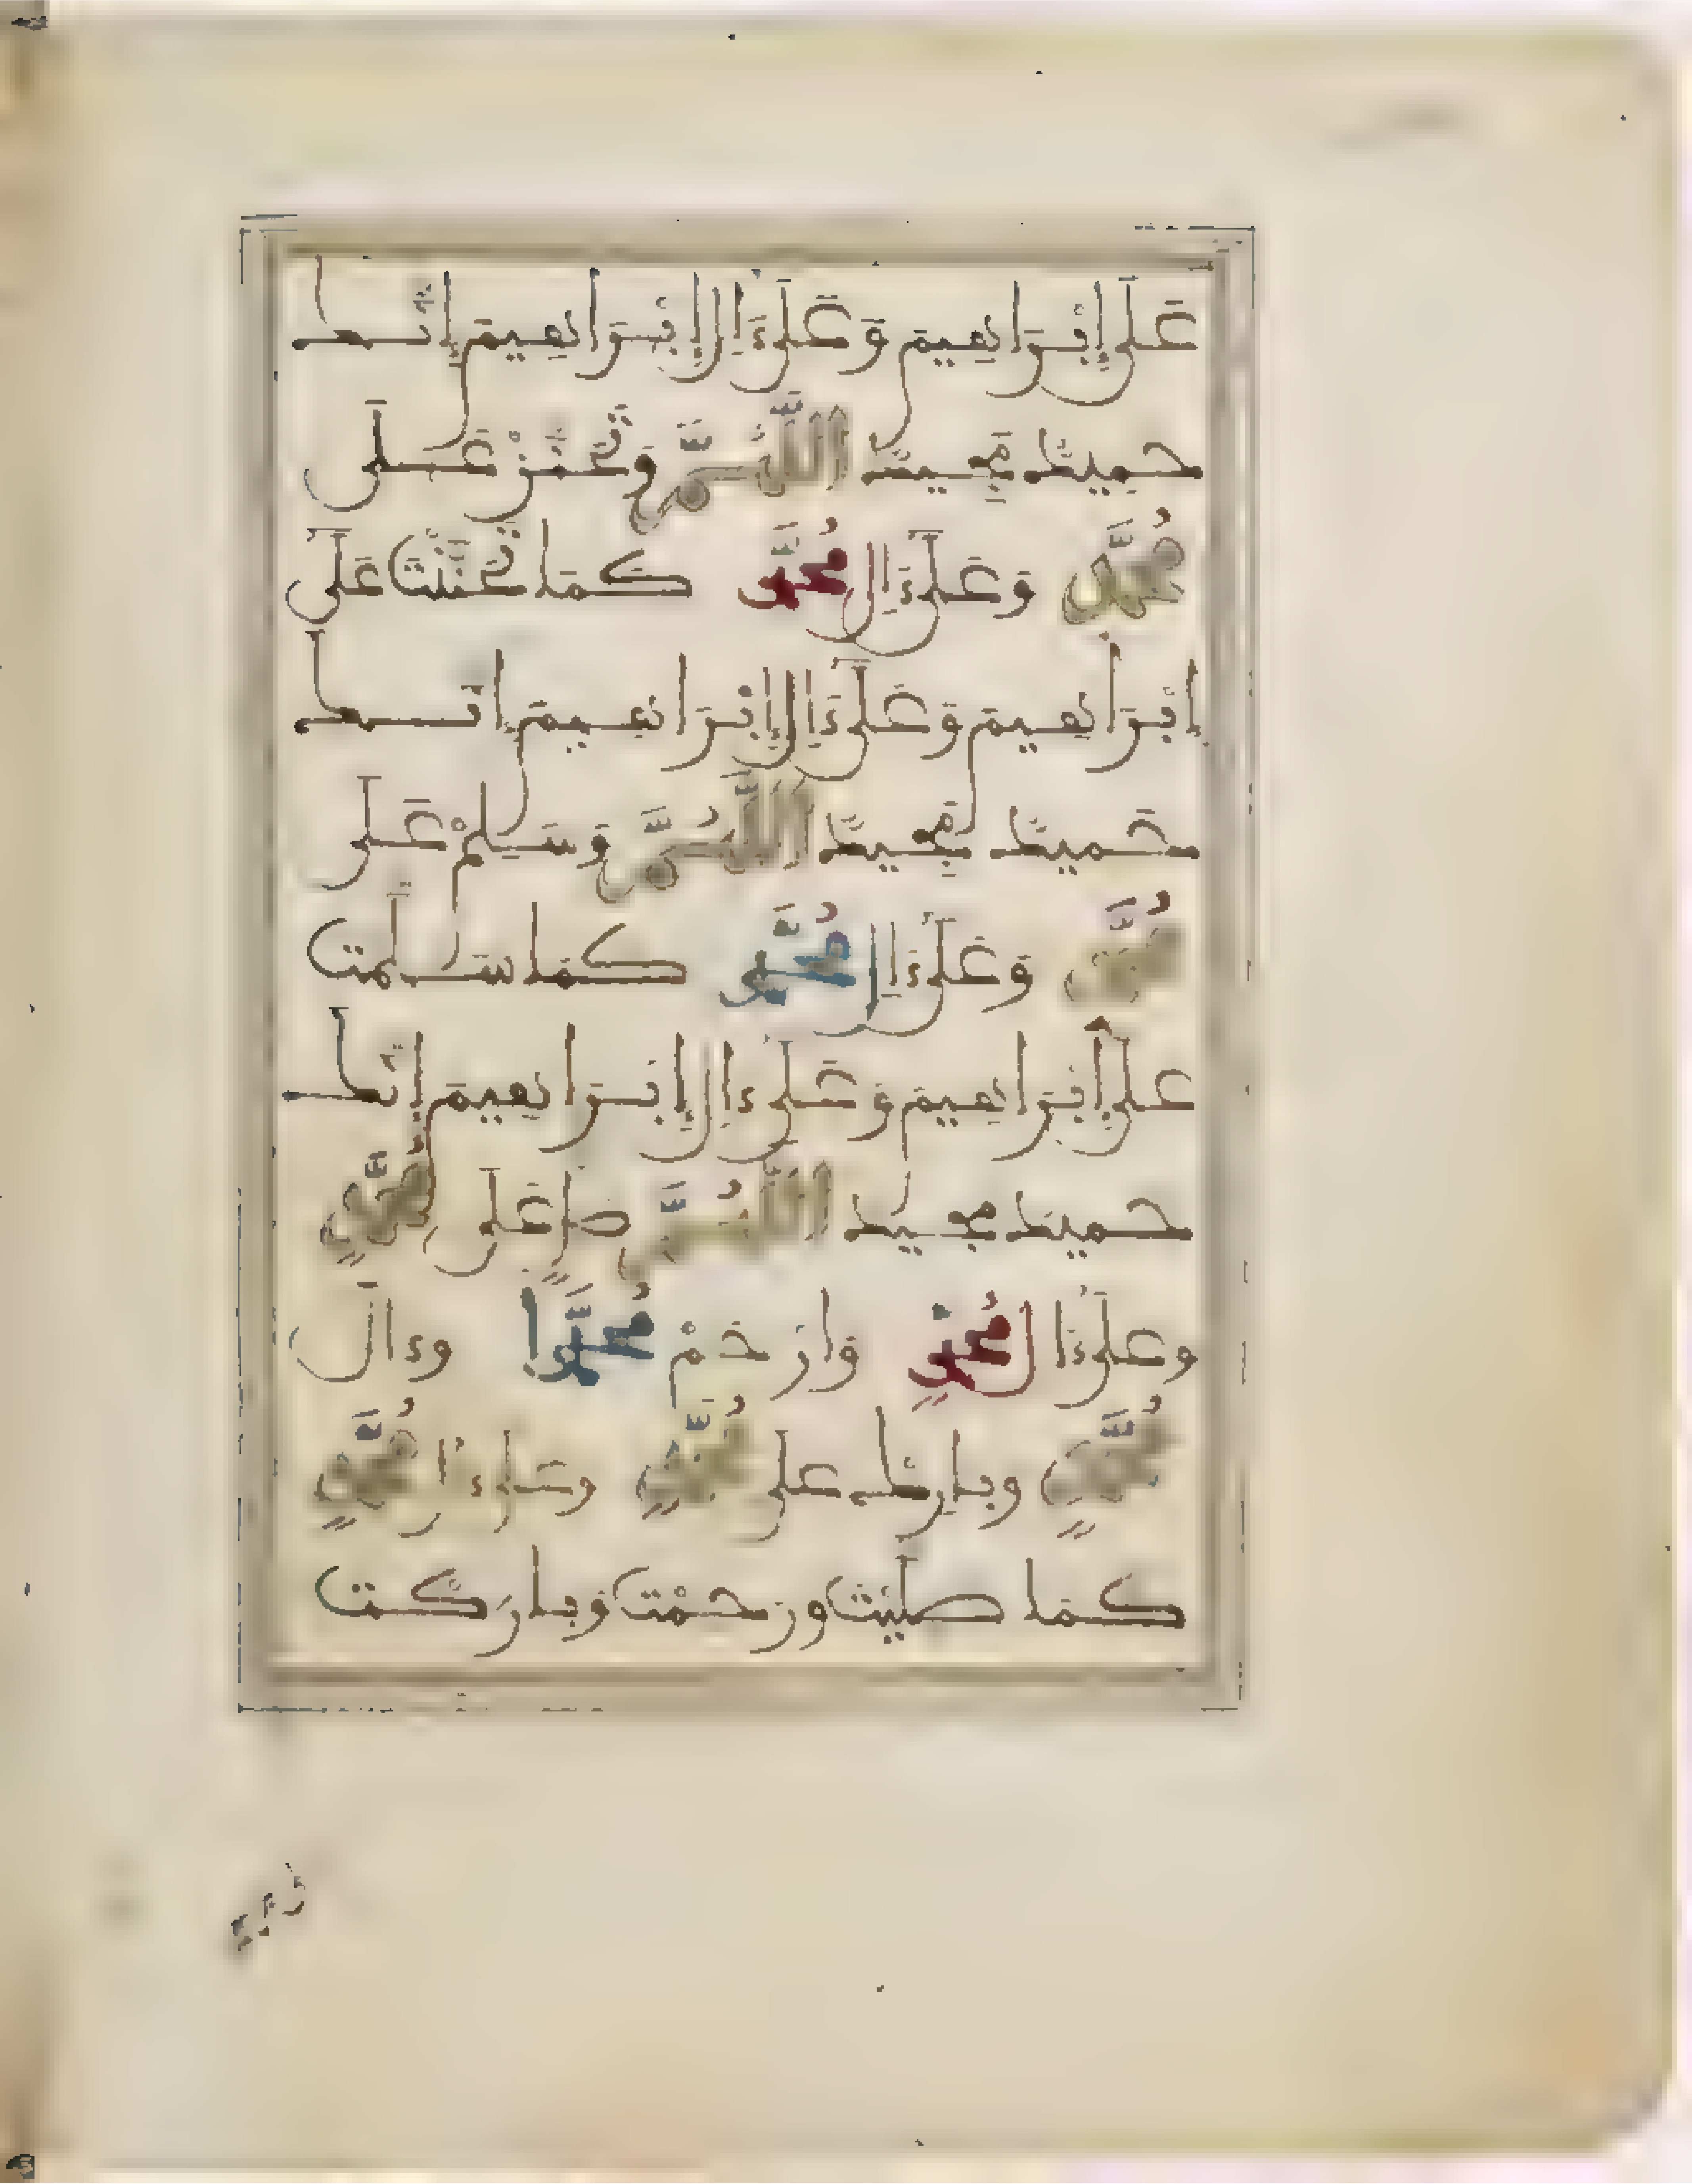 عَلَى إِبْرَاهِيمَ وَعَلَى ءَالِ إِبْرَاهِيمَ إِنَّكَ
حَمِيدٌ مَجِيدٌ اللَّهُمَّ وَتَحَنَّنْ عَلَى
مُحَمَّدٍ وَعَلَى ءَالِ مُحَمَّدٍ كَمَا تَحَنَّنْتَ عَلَى
إِبْرَاهِيمَ وَعَلَى ءَالِ إِبْرَاهِيمَ إِنَّكَ
حَمِيدٌ مَجِيدٌ اللَّهُمَّ وَسَلِّمْ عَلَى
مُحَمَّدٍ وَعَلَى ءَالِ مُحَمَّدٍ كَمَا سَلَّمْتَ
عَلَى إِبْرَاهِيمَ وَعَلَى ءَالِ إِبْرَاهِيمَ إِنَّكَ
حَمِيدٌ مَجِيدٌ اللَّهُمَّ صَلِّ عَلَى مُحَمَّدٍ
وَعَلَى ءَالِ مُحَمَّدٍ وَارْحَمْ مُحَمَّدًا وَءَالَ
مُحَمَّدٍ وَبَارِكْ عَلَى مُحَمَّدٍ وَعَلَى ءَالِ مُحَمَّدٍ
كَمَا صَلَّيْتَ وَرَحِمْتَ وَبَارَكْتَ